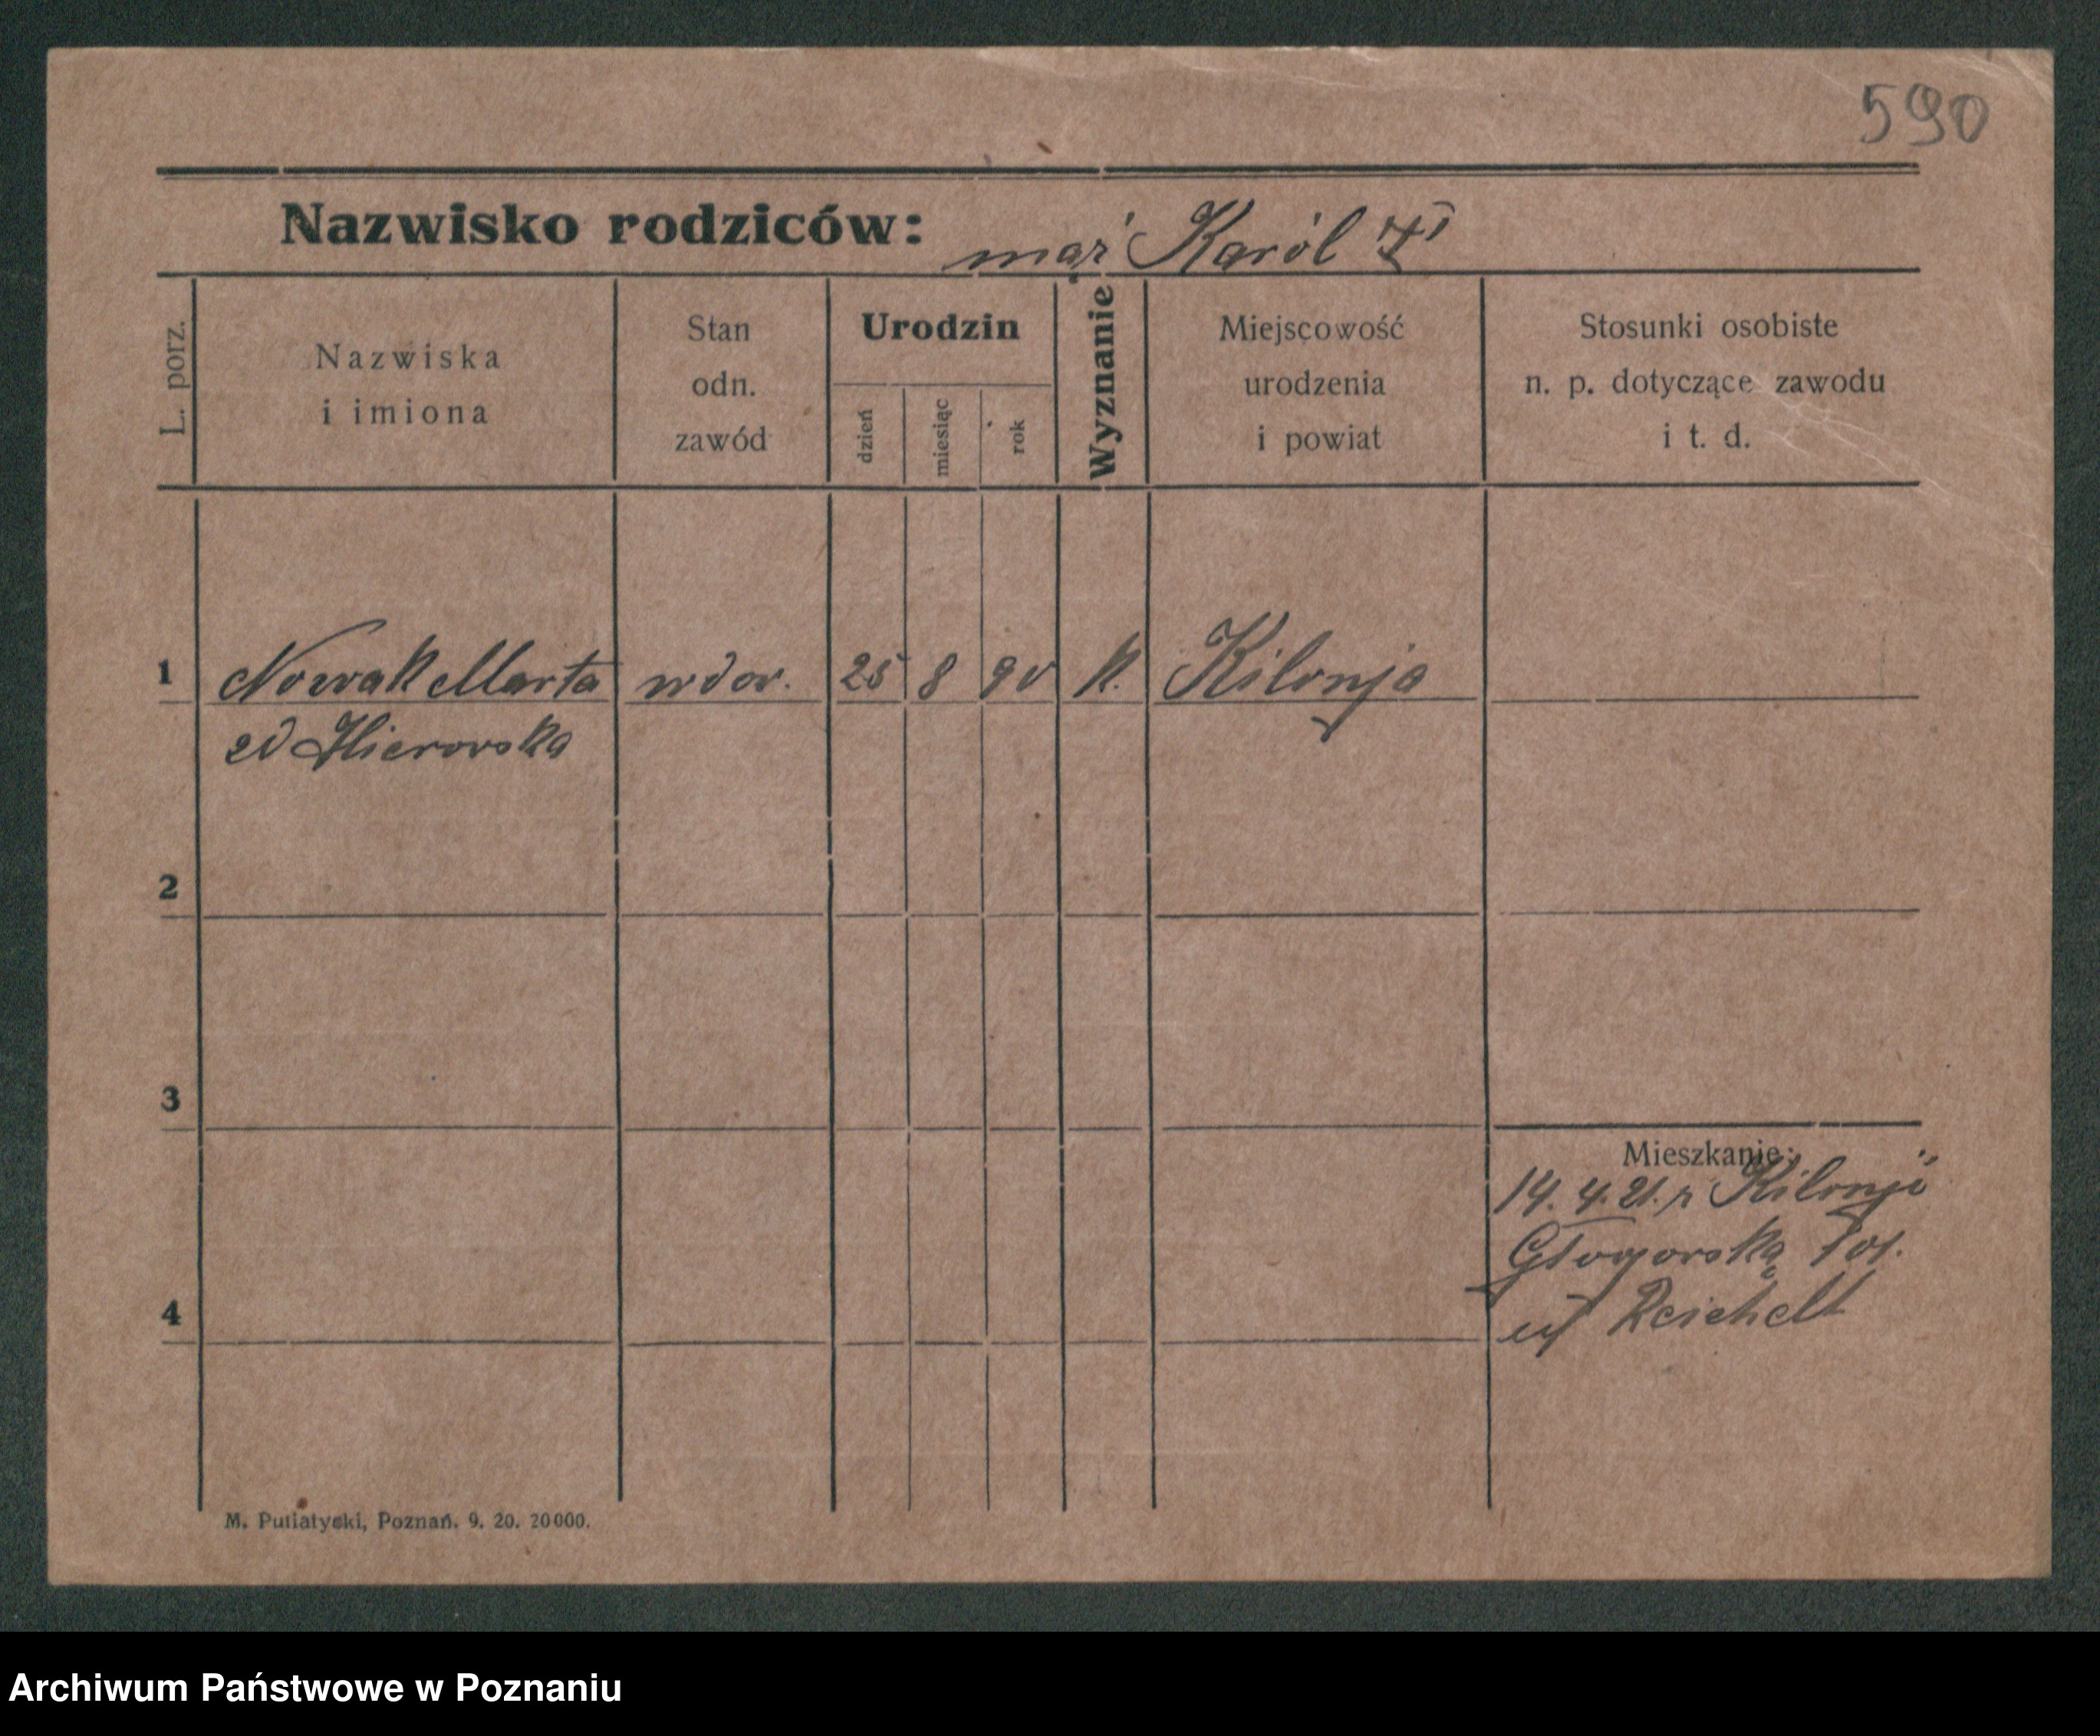 590
Nazwisko rodziców: mąż Karól
L. porz.
Nazwiska
i imiona
Stan
odn.
zawód
Urodzin
dzień
miesiąc
rok
Wyznanie
Miejscowość
urodzenia
i powiat
Stosunki osobiste
n. p. dotyczące zawodu
i t. d.
1 Nowak Marta wdow. 25 8 90 k. Kilonja
zd
2
3
Mieszkanie:
14. 4. 21. z Kilonji
Głogowska
4
Reichelt
M. Putiatycki, Poznań. 9. 20. 20000.
Archiwum Państwowe w Poznaniu